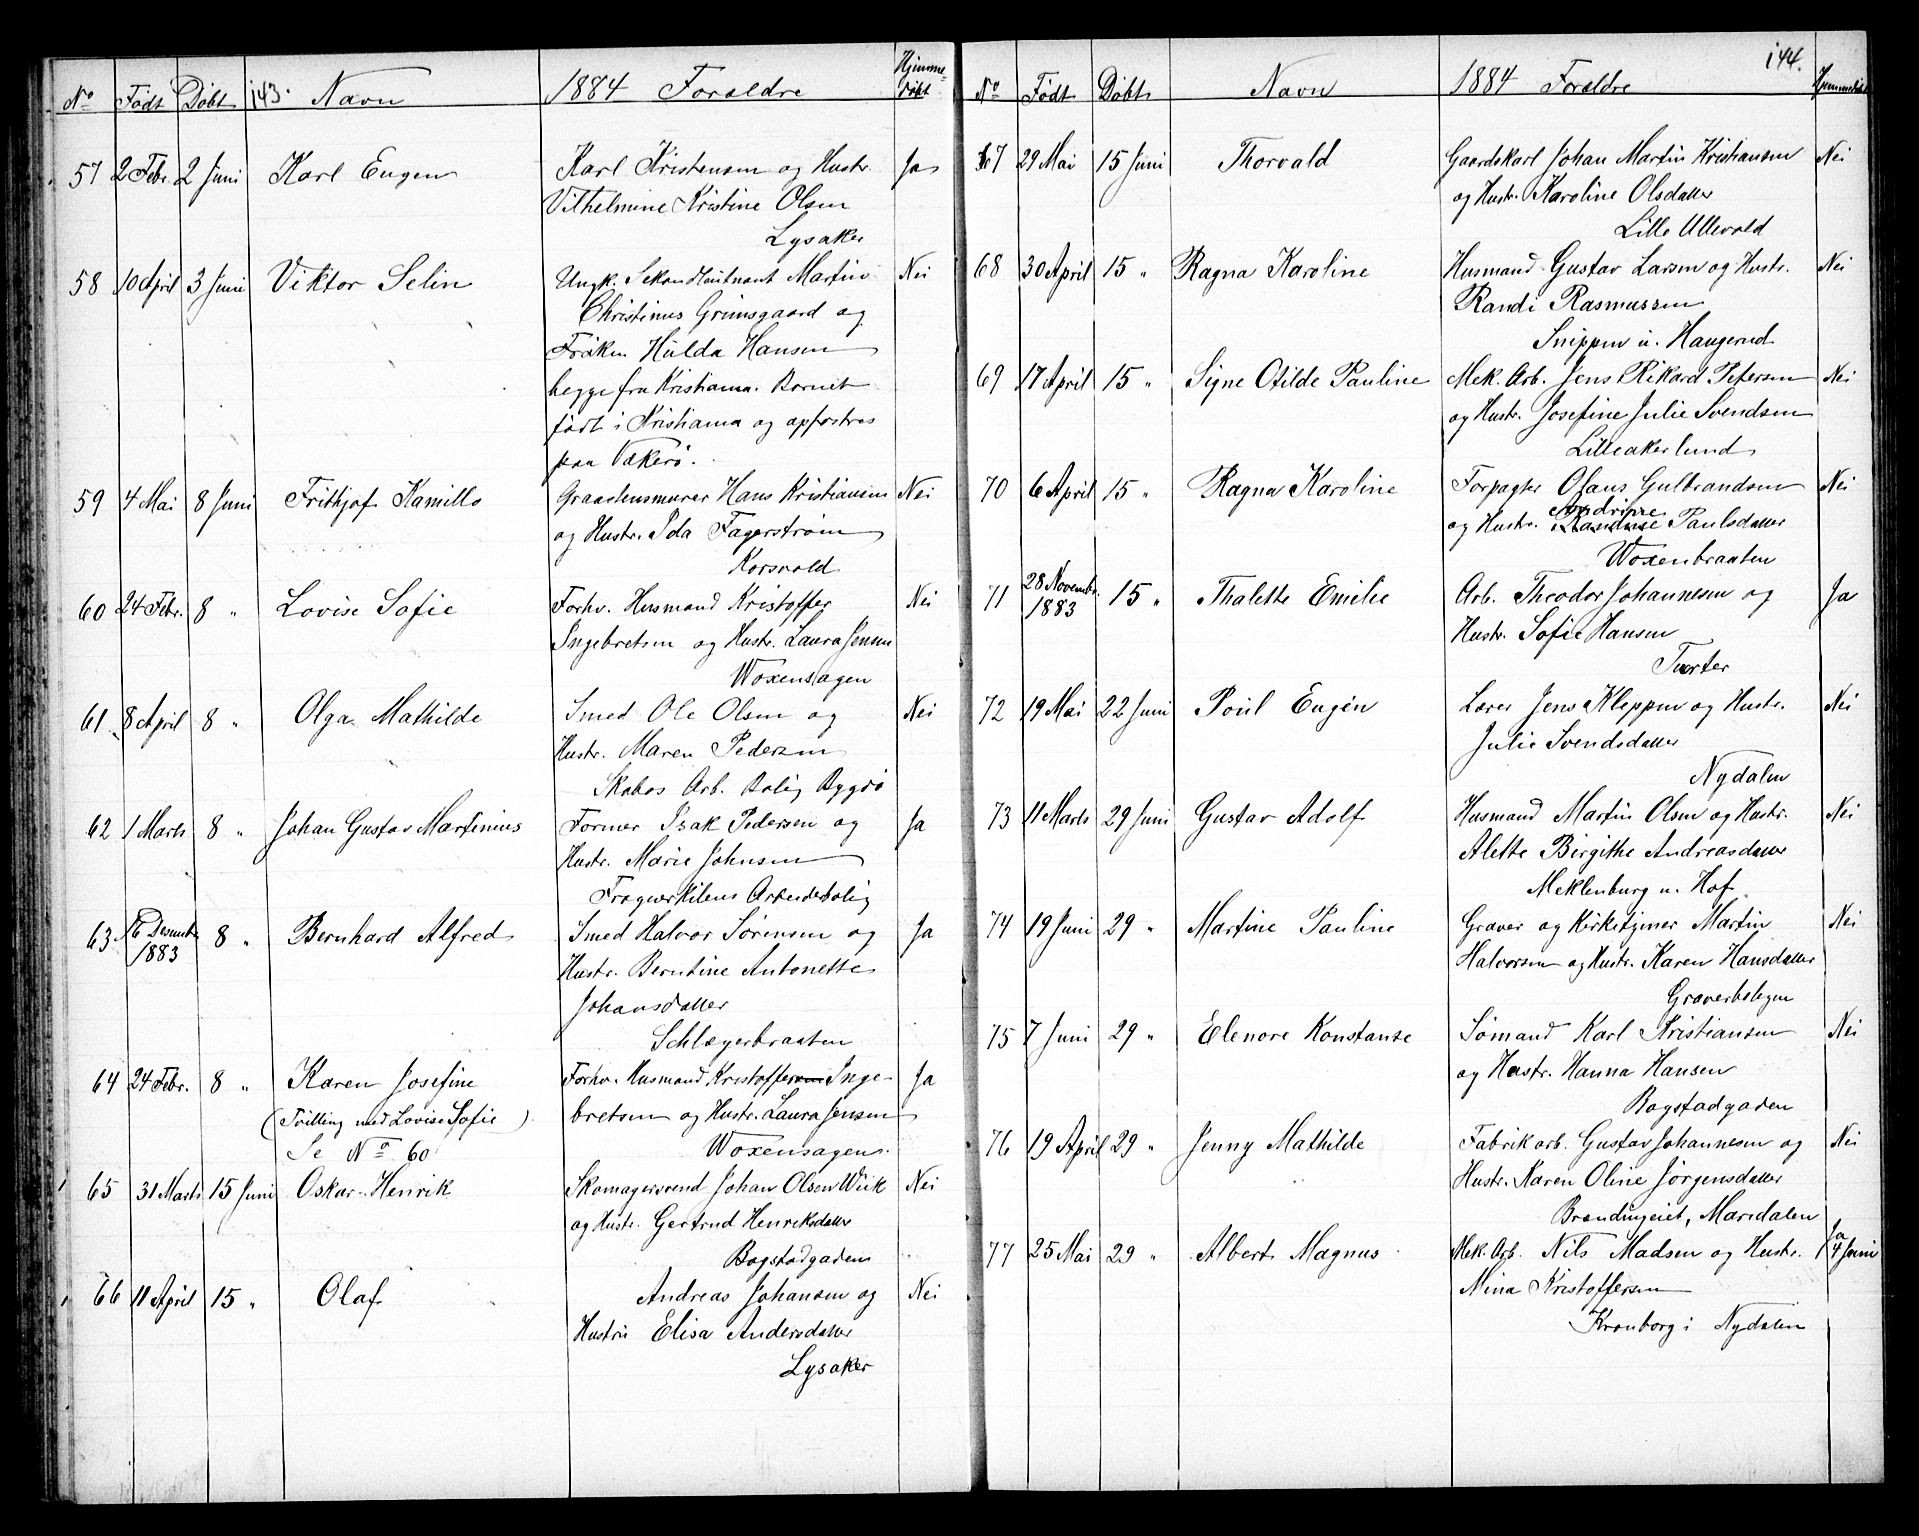 143.
No Født Døbt Navn 1884 Forældre Hjemme-
døbt
57 2 Febr. 2 Juni Karl Eugen Karl Kristensen og Hustr. Ja
Vilhelmine Kristine Olsen
Lysaker
58 10 April 3 Juni Viktor Selin Ungk. Sekondløitnant Martin Nei
Christinus Grimsgaard og
Frøken Hulda Hansen
begge fra Kristiania. Barnet
født i Kristiania og opfostres
paa Vækerø.
59 4 Mai 8 Juni Frithjof Kamillo Graastensmurer Hans Kristiansen Nei
og Hustr. Ida Fagerstrøm
Korsvold
60 24 Febr. 8 " Lovise Sofie Forhv. Husmand Kristoffer Nei
Ingebretsen og Hustr. Laura Jensen
Woxensagen
61 8 April 8 " Olga Mathilde Smed Ole Olsen og Nei
Hustr. Maren Pedersen
Skabos Arb. Bolig Bygdø
62 1 Marts 8 " Johan Gustav Martinius Former Isak Pedersen og Ja
Hustr. Marie Johnsen
Frognerkilens Arbeiderbolig
63 16 Desembr 1883 8 " Bernhard Alfred Smed Halvor Sørensen og Ja
Hustr. Berntine Antonette
Johansdatter
Schlægerbraaten
64 24 Febr. 8 " Karen Josefine Forhv. Husmand Kristoffersen Inge- Ja
(Tvilling med Lovise Sofie) bretsen og Hustr. Laura Jensen
Se No 60 Woxensagen.
65 31 Marts 15 Juni Oskar Henrik Skomagersvend Johan Olsen Wiik Nei
og Hustr. Gertrud Henriksdatter
Bogstadgaden
66 11 April 15 " Olaf Andreas Johansen og Nei
Hustru Elisa Andersdatter
Lysaker
144.
No Født Døbt Navn 1884 Forældre Hjemmedøbt
67 29 Mai 15 Juni Thorvald Gaardskarl Johan Martin Kristiansen Nei
og Hustr. Karoline Olsdatter
Lille Ullevold
68 30 April 15 " Ragna Karoline Husmand Gustav Larsen og Hustr. Nei
Randi Rasmussen
Snippen u. Haugerud
69 17 April 15 " Signe Otilde Pauline Mek. Arb. Jens Rikard Petersen Nei
og Hustr. Josefine Julie Svendsen
Lilleakerlund
70 6 April 15 " Ragna Karoline Forpagter Olaus Gulbrandsen Nei
Andrine
og Hustr. Randine Paulsdatter
Woxenbraaten
71 28 Novembr. 1883 15 " Thalette Emilie Arb. Theodor Johannesen og Ja
Hustr. Sofie Hansen
Tuerter
72 19 Mai 22 Juni Poul Eugén Lærer Jens Kleppen og Hustr. Nei
Julie Svendsdatter
Nydalen
73 11 Marts 29 Juni Gustav Adolf Husmand Martin Olsen og Hustr. Nei
Alette Birgithe Andreasdatter
Meklenburg u. Hof
74 19 Juni 29 " Martine Pauline Graver og Kirketjener Martin Nei
Halvorsen og Hustr. Karen Hansdatter
Graverboligen
75 7 Juni 29 " Elenore Konstanse Sømand Karl Kristiansen Nei
og Hustr. Hanna Hansen
Bogstadgaden
76 19 April 29 " Jenny Mathilde Fabrikarb. Gustav Johannesen og Nei
Hustr. Karen Oline Jørgensdatter
Brændingeiet, Maridalen
77 25 Mai 29 " Albert Magnus Mek. Arb. Nils Madsen og Hustr. Ja 4 Juni
Mina Kristoffersen
Kronborg i Nydalen